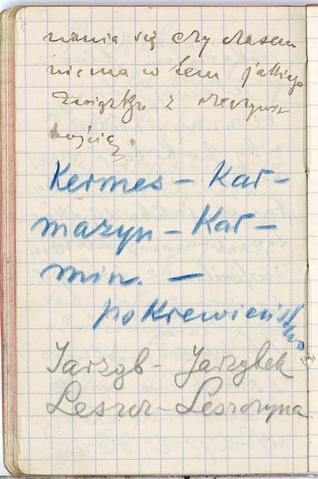 niania się czy czasem
niema w tem jakiego
związku z rzeczywis
tością.
Kermes – Kar–
mazyn – Kar–
min. –
pokrewieństwo
Jarząb – Jarząbek
Leszcz – Leszczyna